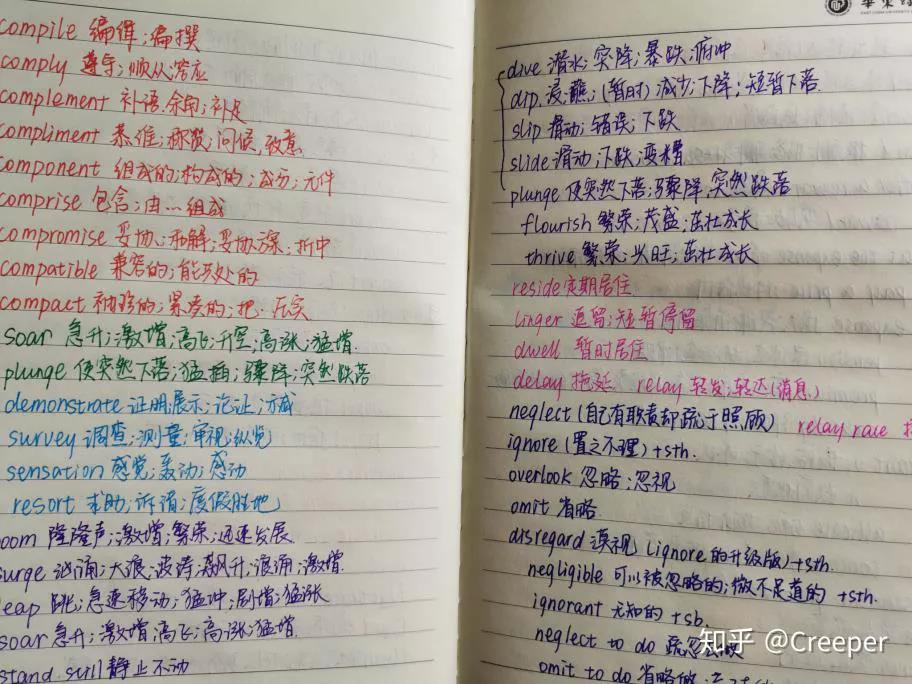 compile 编缉;编撰
comply 遵守;顺从;答应
complement 补语;余角;补足
compliment 恭维;称赞;问候,致意
component 组成的;构成的;成分;元件
comprise 包含;由…组成
compromise 妥协;和解;妥协案;折中
compatible 兼容的;能共处的
compact 袖珍的;紧凑的;把…压实
soar 急升;激增;高飞;升空;高涨;猛增.
plunge 使突然下落;猛插;骤降;突然跌落
demonstrate 证明;展示;论证;示威
survey 调查;测量;审视;纵览
sensation 感觉;轰动;感动
resort 求助;诉诸;度假胜地
oom 隆隆声;激增;繁荣;迅速发展
surge 汹涌;大浪;波涛;飙升;浪涌;激增.
leap 跳;急速移动;猛冲;剧增;猛涨
soar 急升;激增;高飞;高涨;猛增.
stand still 静止不动
dive 潜水;突降;暴跌;俯冲
dip. 浸;蘸;(暂时)减少;下降;短暂下落
slip 滑动;错误;下跌
slide 滑动;下跌;变糟
plunge 使突然下落;骤降,突然跌落
flourish 繁荣;茂盛;茁壮成长
thrive 繁荣;兴旺;茁壮成长
reside 定期居住
linger 逗留;短暂停留
dwell 暂时居住
delay 拖延 relay 转发;转达(消息)
neglect (自己有职责却疏于照顾) relay race
ignore (置之不理)+sth.
overlook 忽略;忽视
omit 省略
disregard 漠视 (ignore的升级版)+sth.
negligible 可以被忽略的;微不足道的 +sth.
ignorant 无知的 +sb.
neglect to do 疏忽
omit to do 省略做
知乎 @Creeper